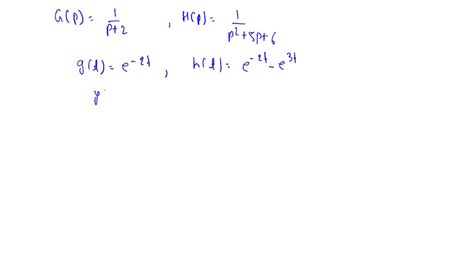 G(p) = 1/(p+2) , H(p) = 1/(p²+5p+6)
g(t) = e^{-2t} , h(t) = e^{-2t} - e^{3t}
y